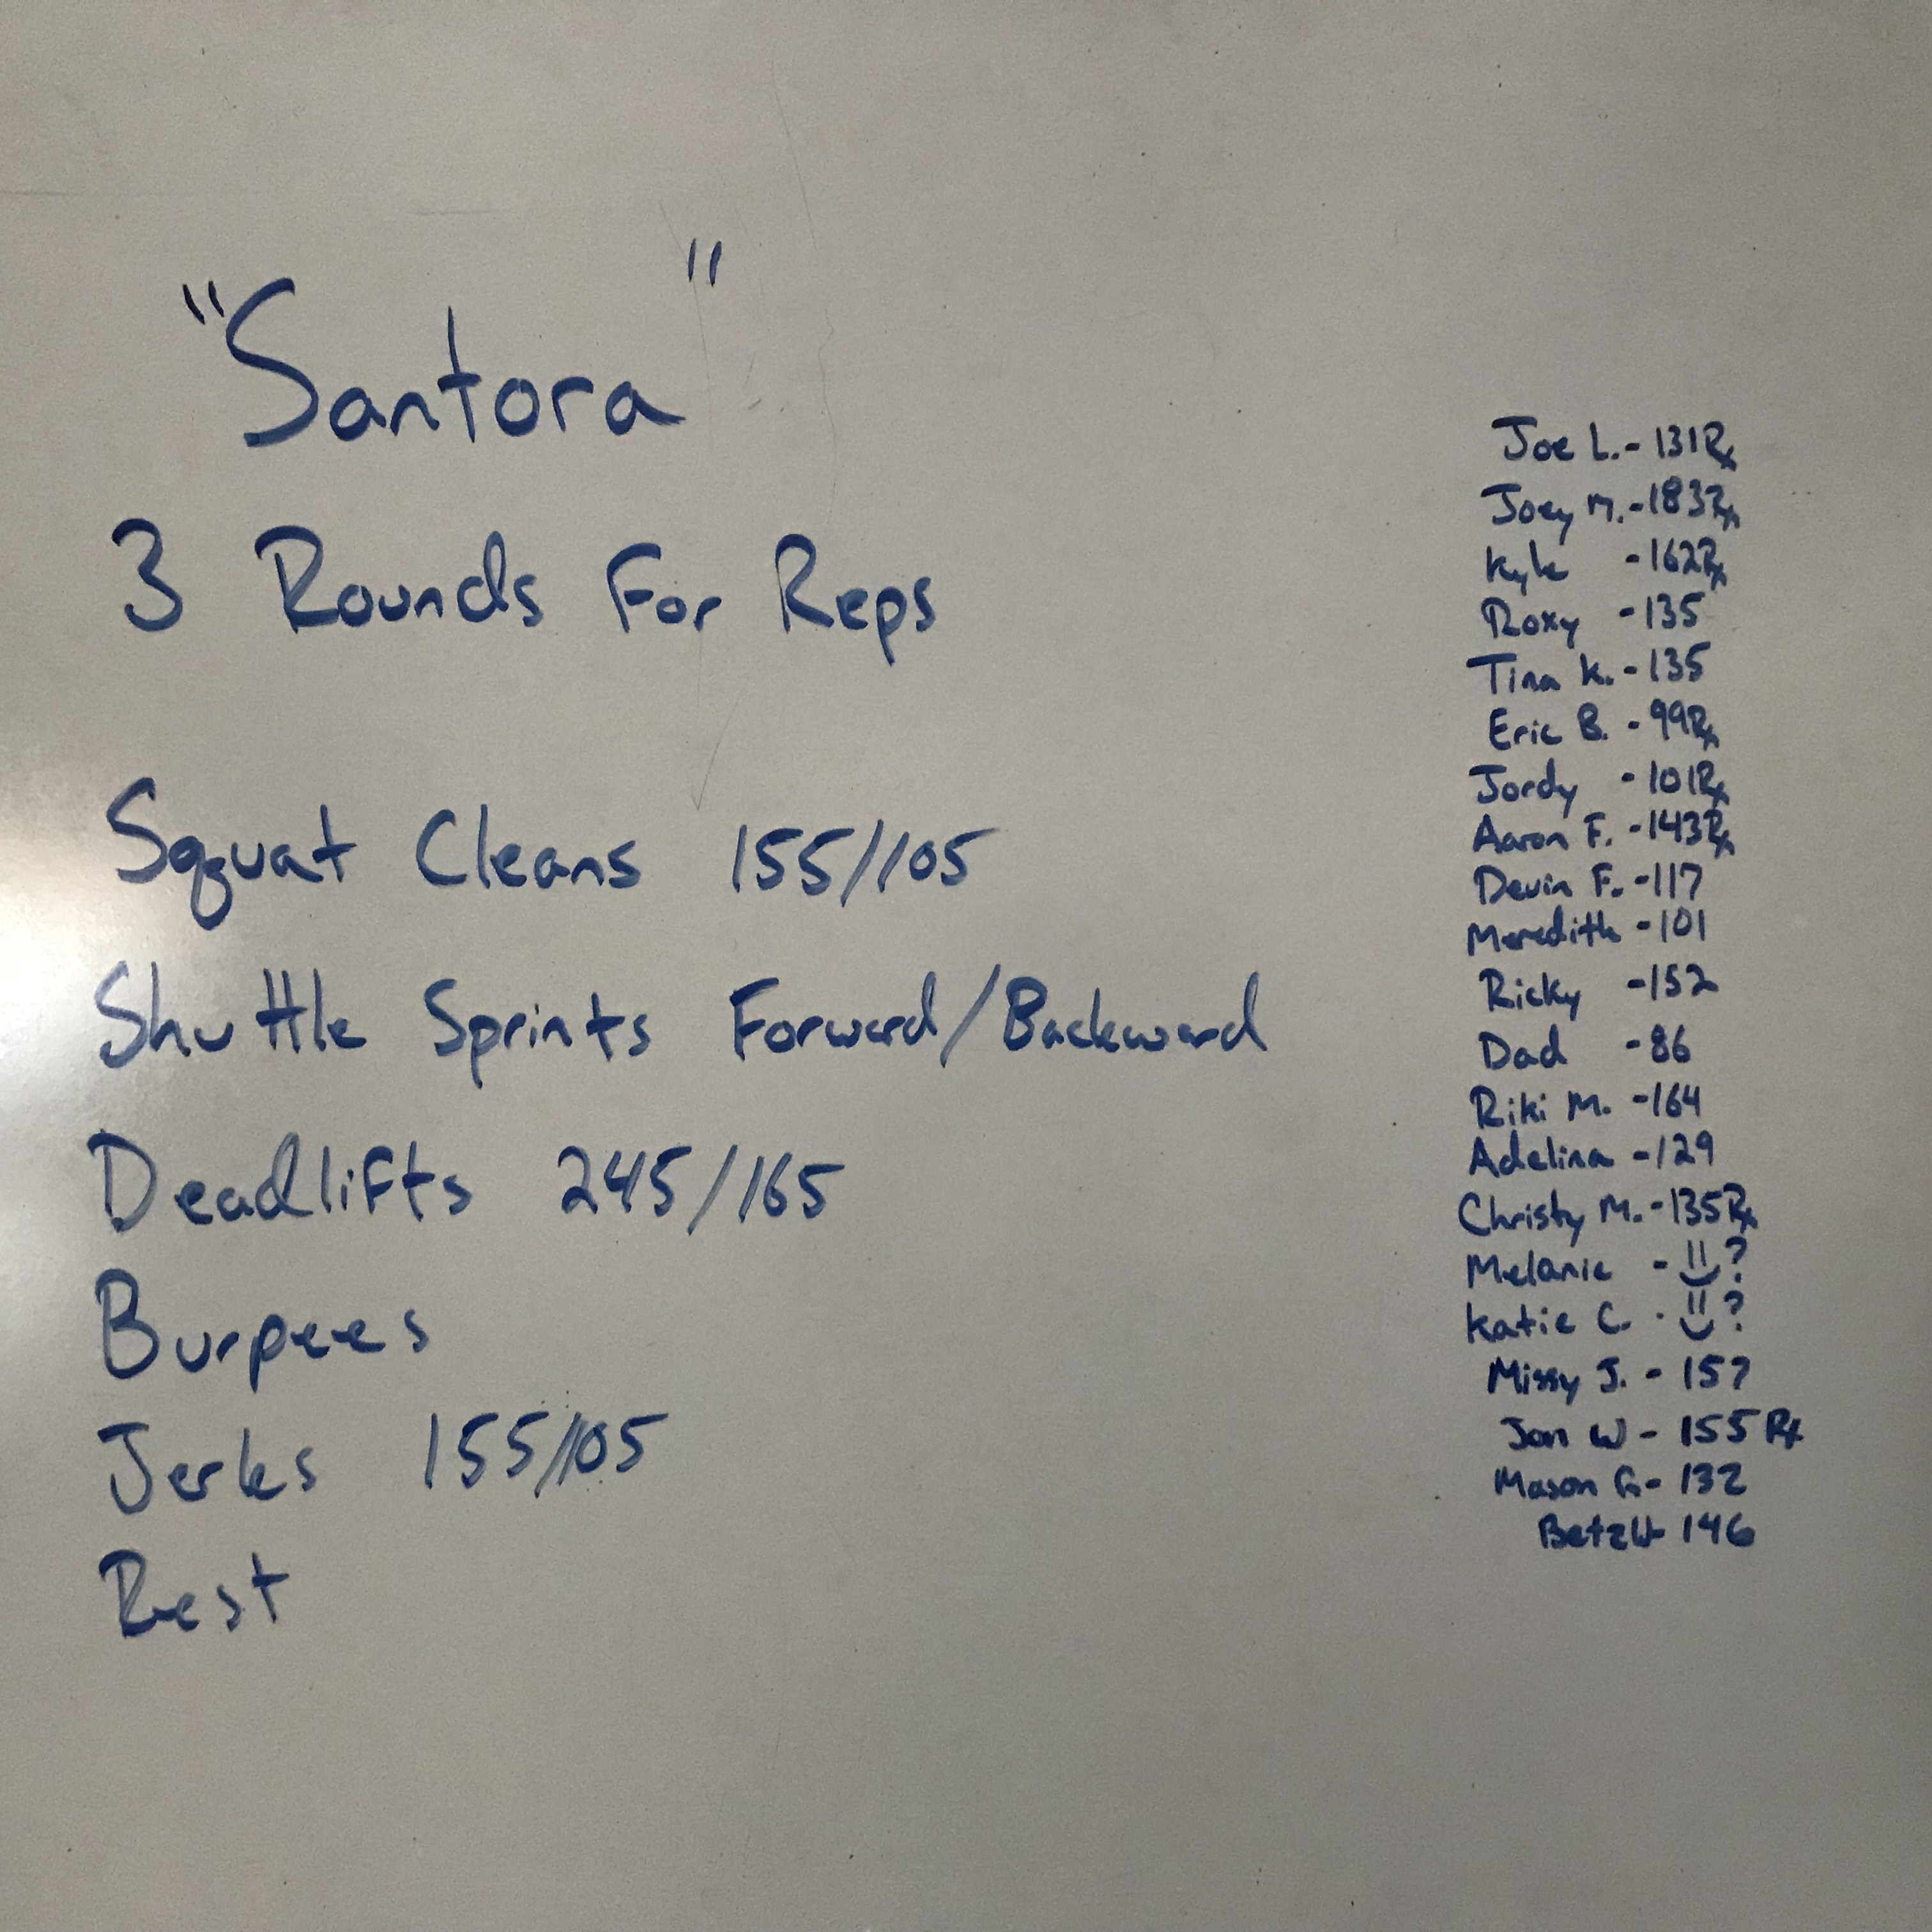 "Santora"
3 Rounds For Reps
Squat Cleans 155/105
Shuttle Sprints Forward/Backward
Deadlifts 245/165
Burpees
Jerks 155/105
Rest
Joe L. - 131 Rx
Joey M. - 183 Rx
Kyle - 162 Rx
Roxy - 135
Tina K. - 135
Eric B. - 99 Rx
Jordy - 101 Rx
Aaron F. - 143 Rx
Devin F. - 117
Meredith - 101
Ricky - 152
Dad - 86
Riki M. - 164
Adelina - 129
Christy M. - 135 Rx
Melanie - ?
Katie C. - ?
Missy J. -
Jon W - 155 Rx
Mason G. - 132
146